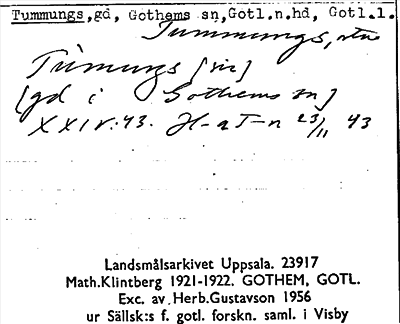 Tummungs,gd, Gothems sn,Gotl.n.hd, Gotl.l.
Tummungs,
Tùmungs [sic]
[gd i Gothems sn]
XXIV:43. H-a T-n 23/11 43
Landsmålsarkivet Uppsala. 23917
Math.Klintberg 1921-1922. GOTHEM, GOTL.
Exc. av Herb.Gustavson 1956
ur Sällsk:s f. gotl. forskn. saml. i Visby